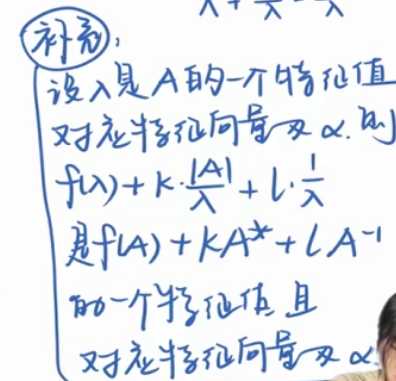 λ + / λ - λ
补充,
设λ是A的一个特征值
对应特征向量为α.则
f(λ)+k·|A|/λ+l·1/λ
是f(A)+kA*+lA⁻¹
的一个特征值且
对应特征向量为α